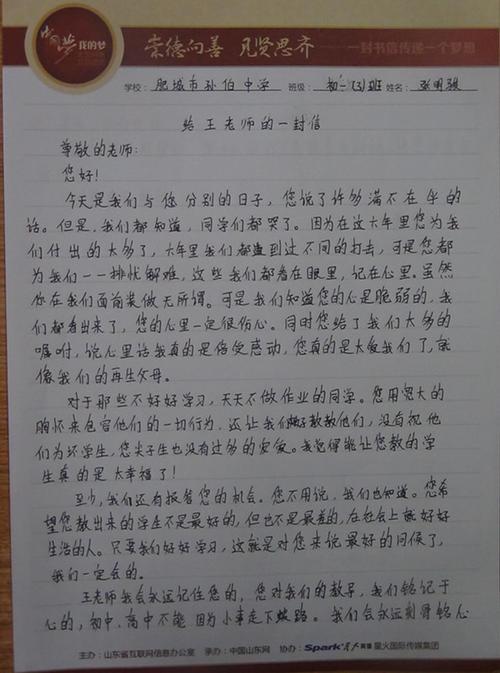 中国梦 我的梦
崇德向善 见贤思齐 一封书信传递一个梦想
学校：肥城市孙伯中学 班级：初一(3)班 姓名：张明骏
给王老师的一封信
尊敬的老师：
您好！
今天是我们与您分别的日子，您说了许多满不在乎的
话。但是，我们都知道，同学们都哭了。因为在这大年里您为我
们付出的太多了，大年里我们都遭到过不同的打击，可是您都
为我们一一排忧解难，这些我们都看在眼里，记在心里。虽然
你在我们面前装做无所谓。可是我们知道您的心是脆弱的，我
们都看出来了，您的心里一定很伤心。同时您给了我们太多的
嘱咐，说心里话我真的是倍受感动，您真的是太爱我们了，就
像我们的再生父母。
对于那些不好好学习，天天不做作业的同学。您用宽大的
胸怀来包容他们的一切行为，还让我们教教他们，没有视他
们为坏学生，您尖子生也没有过多的宠爱。我觉得能让您教的学
生真的是太幸福了！
至少，我们还有报答您的机会。您不用说，我们也知道。您希
望您教出来的学生不是最好的，但也不是最差的，在社会上能好好
生活的人。只要我们好好学习，这就是对您来说最好的问候了，
我们一定会的。
王老师我会永远记住您的，您对我们的教导，我们铭记于
心的，初中、高中不能因为小事走下坡路。我们会永远刻骨铭心
主办：山东省互联网信息办公室 承办：中国山东网 协办：Spark 星火国际传媒集团